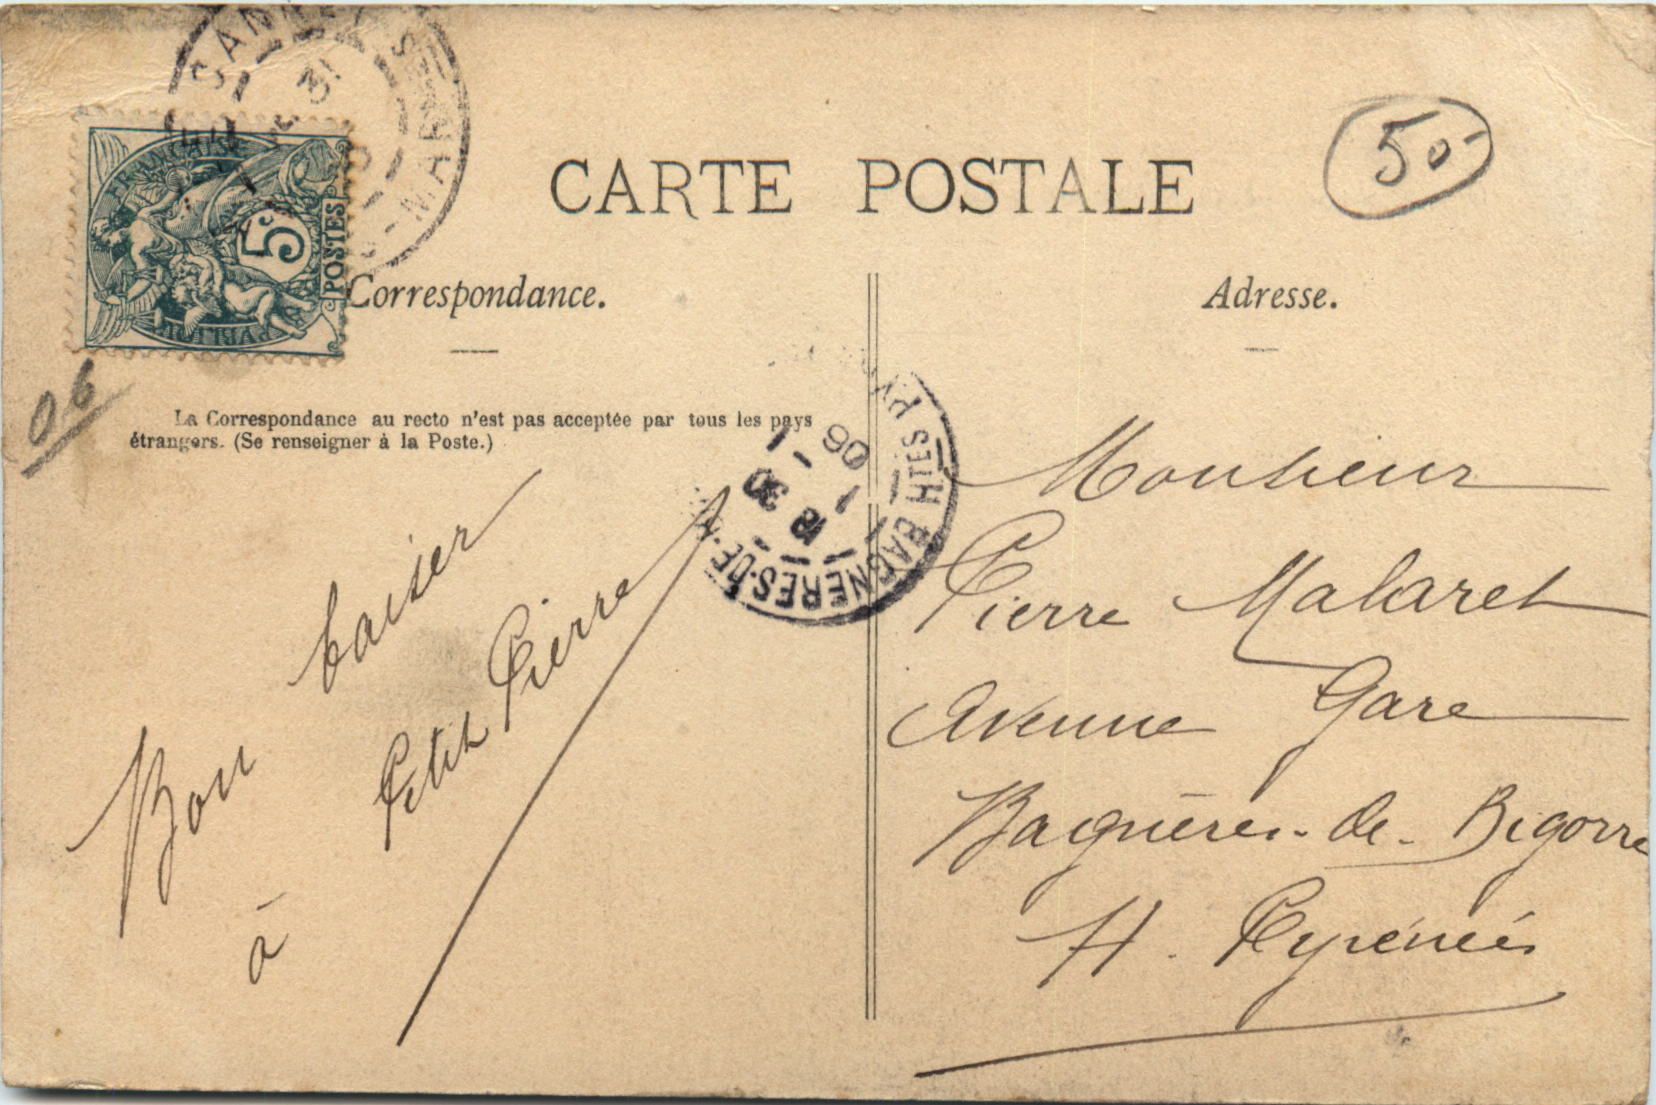 CANNES
MARIT
31
FRANÇAISE
5c
POSTES
CARTE POSTALE
50
Correspondance.
Adresse.
06
La Correspondance au recto n'est pas acceptée par tous les pays
étrangers. (Se renseigner à la Poste.)
BAGNERES-DE-B
HTES PY
18 30
1 - 1
06
Bon baiser
à Petit Pierre
Monsieur
Pierre Malaret
Avenue Gare
Bagnères-de-Bigorre
H. Pyrénées